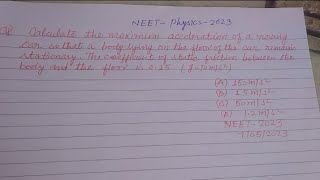 NEET - Physics - 2023
Q Calculate the maximum acceleration of a moving
car so that a body lying on the floor of the car remains
stationary. The coefficient of static friction between the
body and the floor is 0.15 (
(A) 150 m/s²
(B) 1.5 m/s²
(C) 50 m/s²
(D) 1.2 m/s²
NEET - 2023
7/05/2023